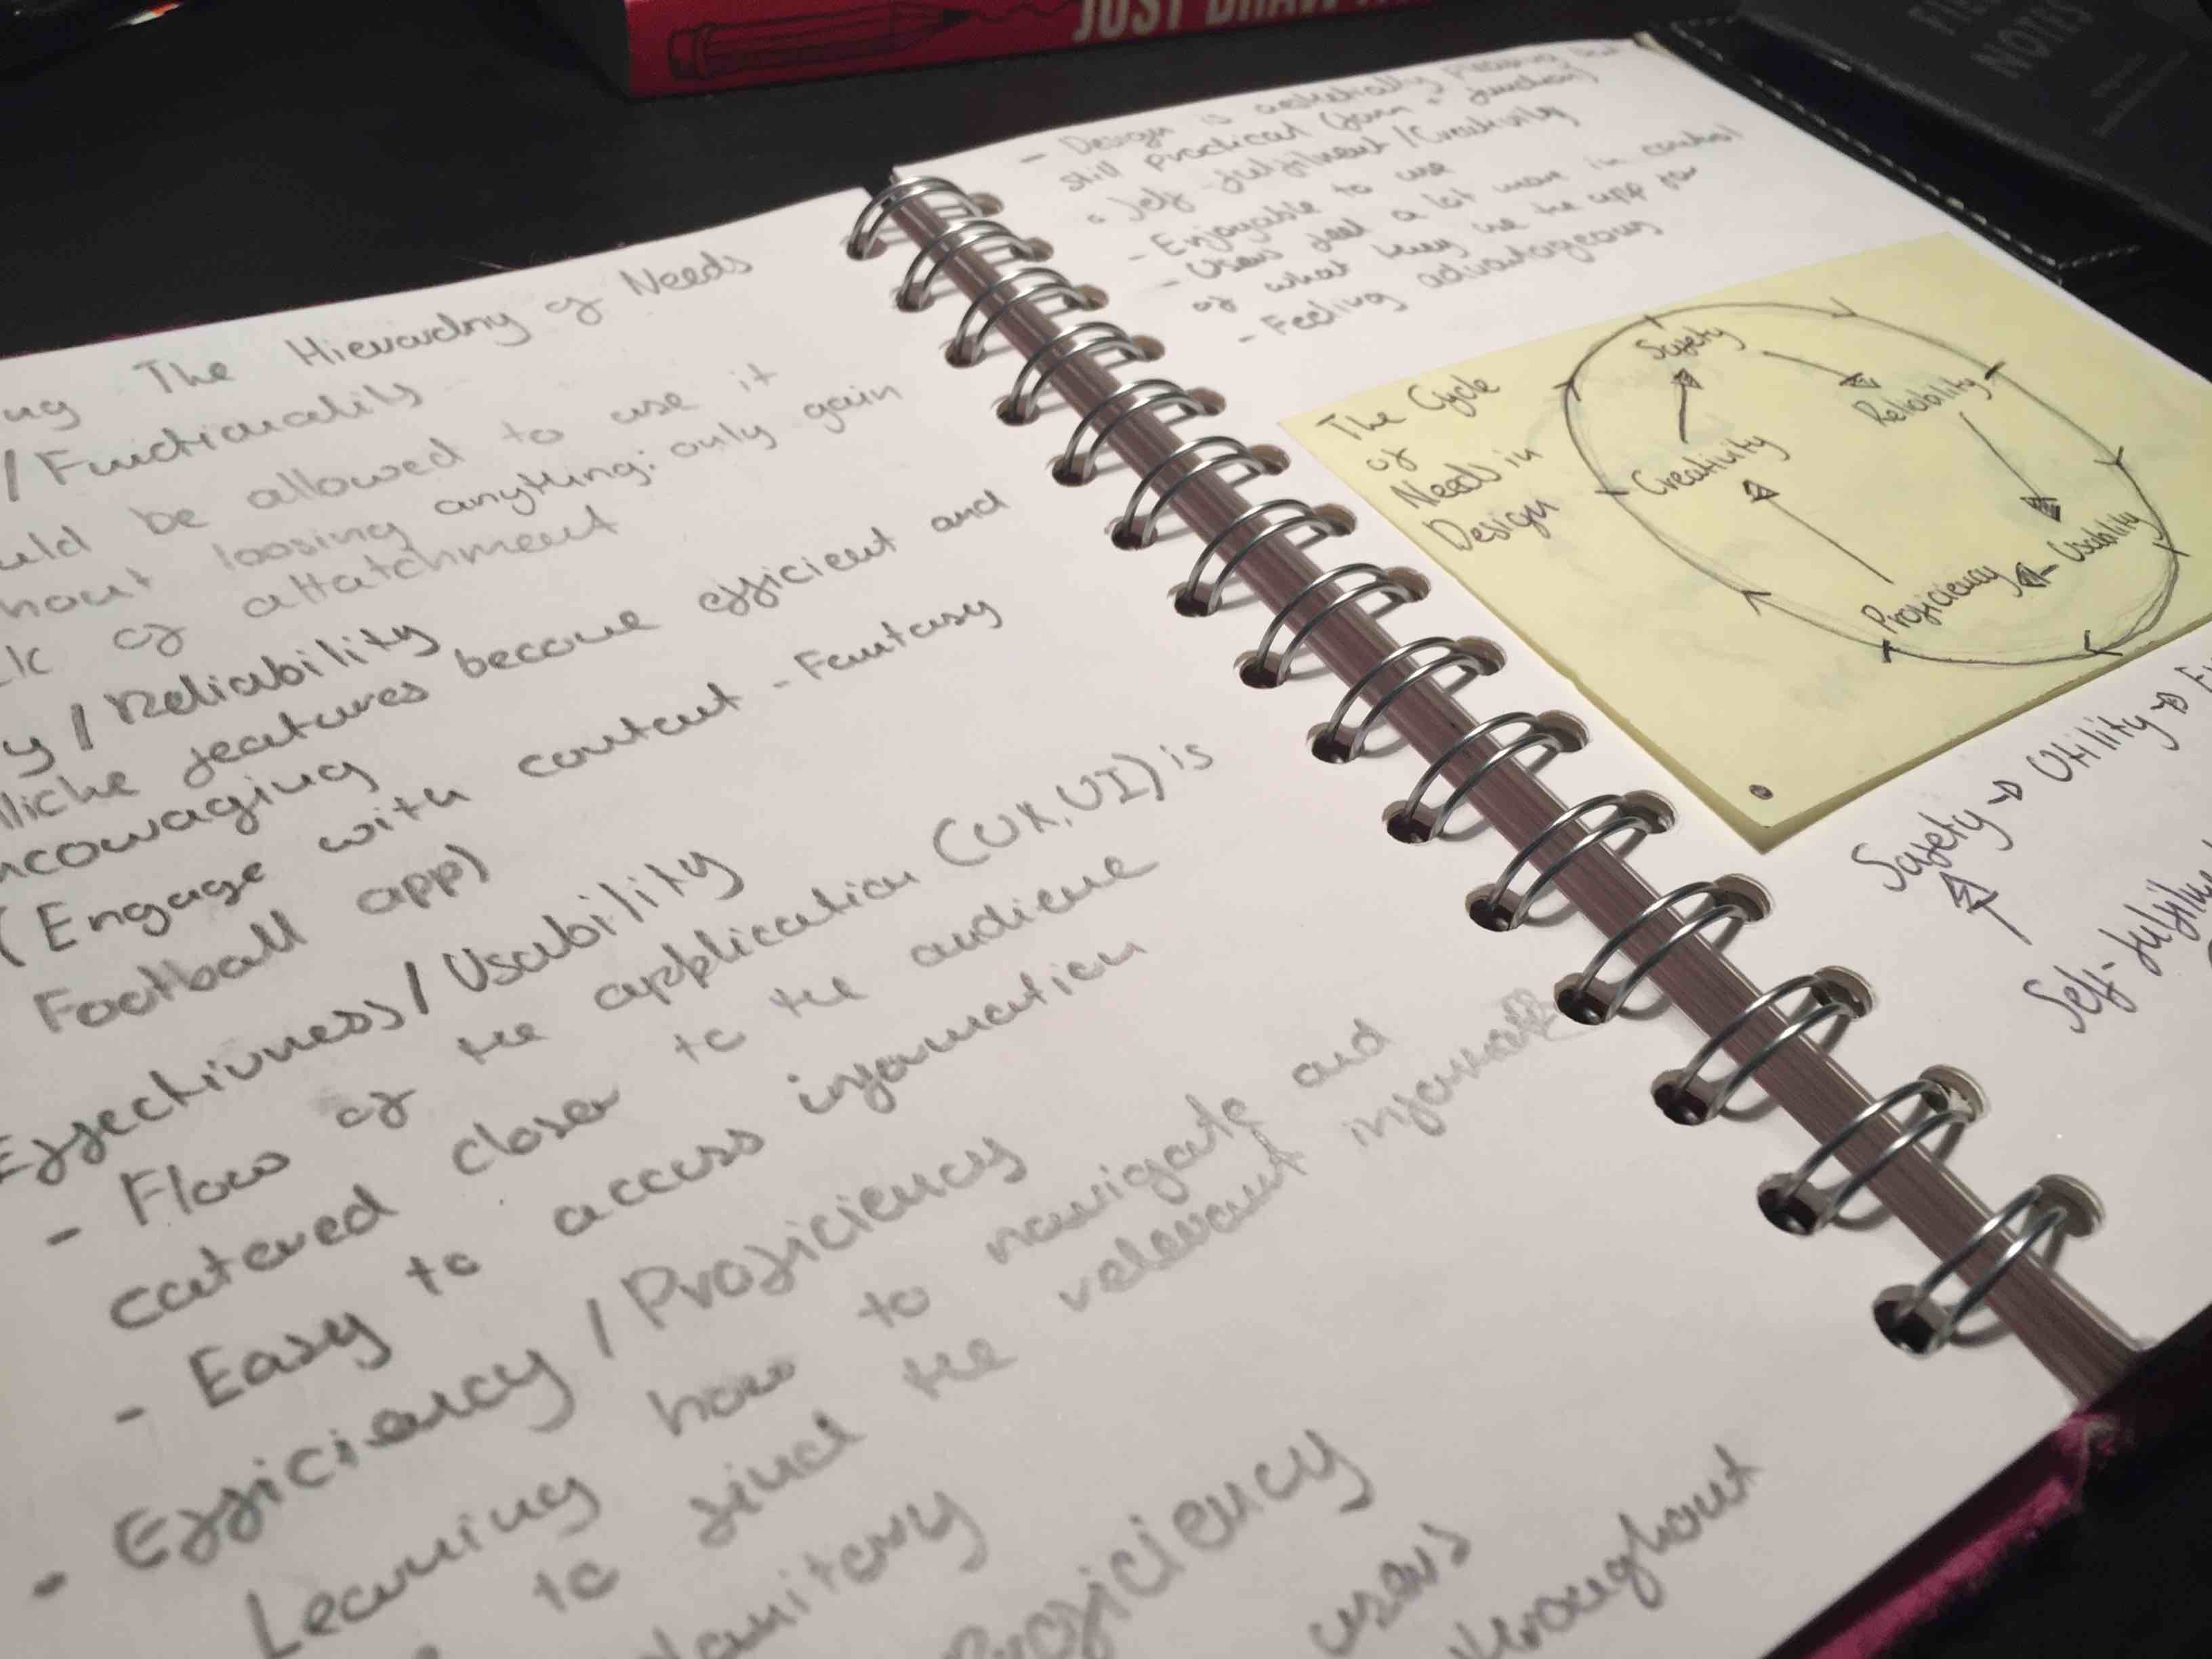 JUST DRAW
NOTES
The Hierarchy of Needs
/ Functionality
be allowed to use it
loosing anything; only gain
of attatchment
/ Reliability
features become efficient and
(Engage with content - Fantasy
Football app)
Effectivness / Usability
- Flow of the application (UX, UI) is
catered closer to the audience
- Easy to access information
• Efficiency / Proficiency
Learning how to navigate and
to find the relevant
Proficiency
users
throughout
- Design is
still practical (form + function)
• Self-fulfilment / Creativity
- Enjoyable to use
- Users feel a lot more in control
of what they use the app for
- Feeling advantageous
The Cycle
of
Needs in
Design
Safety
Reliability
Usability
Proficiency
Creativity
Safety → Utility →